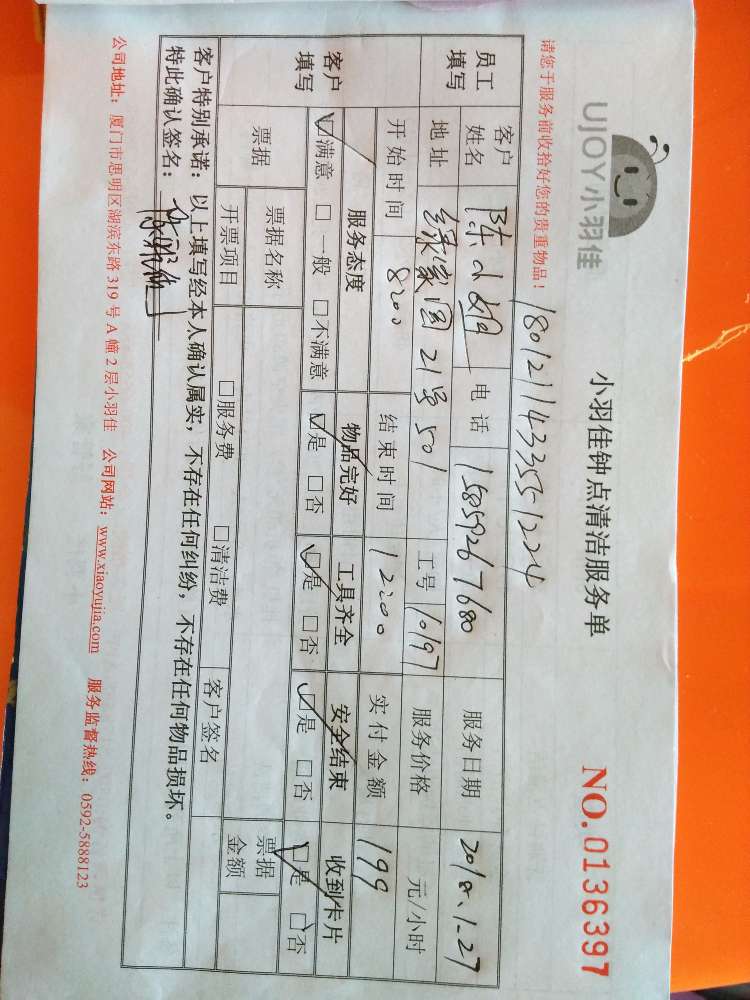 UJOY小羽佳
小羽佳钟点清洁服务单
NO. 0136397
请您于服务前收拾好您的贵重物品！
1801211433551224
员工填写 客户姓名 陈小姐 电话 15859267680 服务日期 2018.1.27
地址 绿家园21号501 工号 10197 服务价格 元/小时
开始时间 8:00 结束时间 12:00 实付金额 199
客户填写 服务态度 物品完好 工具齐全 安全结束 收到卡片
☑满意 □一般 □不满意 ☑是 □否 ☑是 □否 ☑是 □否 ☑是 □否
票据 票据名称 票据金额
开票项目 □服务费 □清洁费 客户签名
客户特别承诺：以上填写经本人确认属实，不存在任何纠纷，不存在任何物品损坏。
特此确认签名：
公司地址：厦门市思明区湖滨东路319号A幢2层小羽佳 公司网站：www.xiaoyujia.com 服务监督热线：0592-5888123